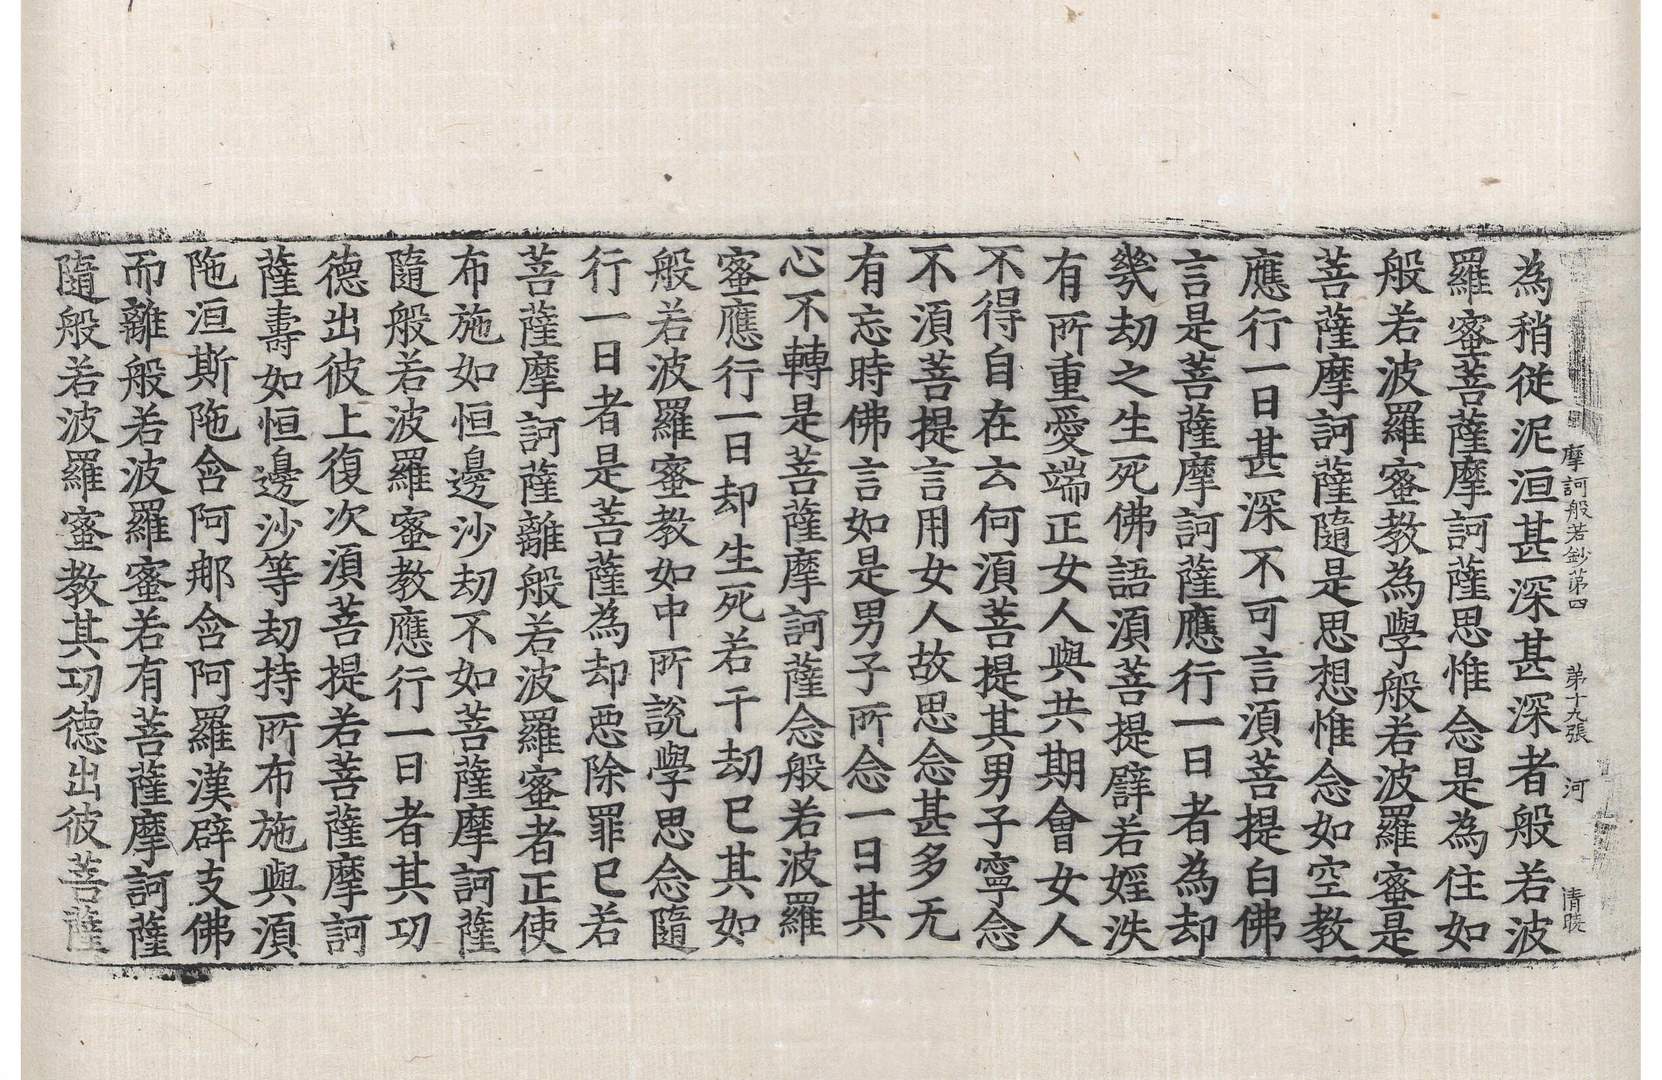 摩訶般若鈔第四　第十九張　河　清暁
為稍從泥洹甚深甚深者般若波
羅蜜菩薩摩訶薩思惟念是為住如
般若波羅蜜教為學般若波羅蜜是
菩薩摩訶薩隨是思想惟念如空教
應行一日甚深不可言湏菩提白佛
言是菩薩摩訶薩應行一日者為却
㡬劫之生死佛語湏菩提譬若婬泆
有所重愛端正女人與共期會女人
不得自在云何湏菩提其男子寧念
不湏菩提言用女人故思念甚多无
有忘時佛言如是男子所念一日其
心不轉是菩薩摩訶薩念般若波羅
蜜應行一日却生死若干劫已其如
般若波羅蜜教如中所說學思念隨
行一日者是菩薩為却惡除罪已若
菩薩摩訶薩離般若波羅蜜者正使
布施如恒邊沙劫不如菩薩摩訶薩
隨般若波羅蜜教應行一日者其功
德出彼上復次湏菩提若菩薩摩訶
薩壽如恒邊沙等劫持所布施與湏
陁洹斯陁含阿那含阿羅漢辟支佛
而離般若波羅蜜若有菩薩摩訶薩
隨般若波羅蜜教其功德出彼菩薩